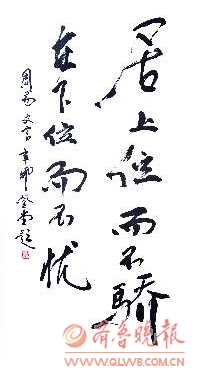 居上位而不骄
在下位而不忧
周易文言辛卯登堂题
齐鲁晚报
WWW.QLWB.COM.CN